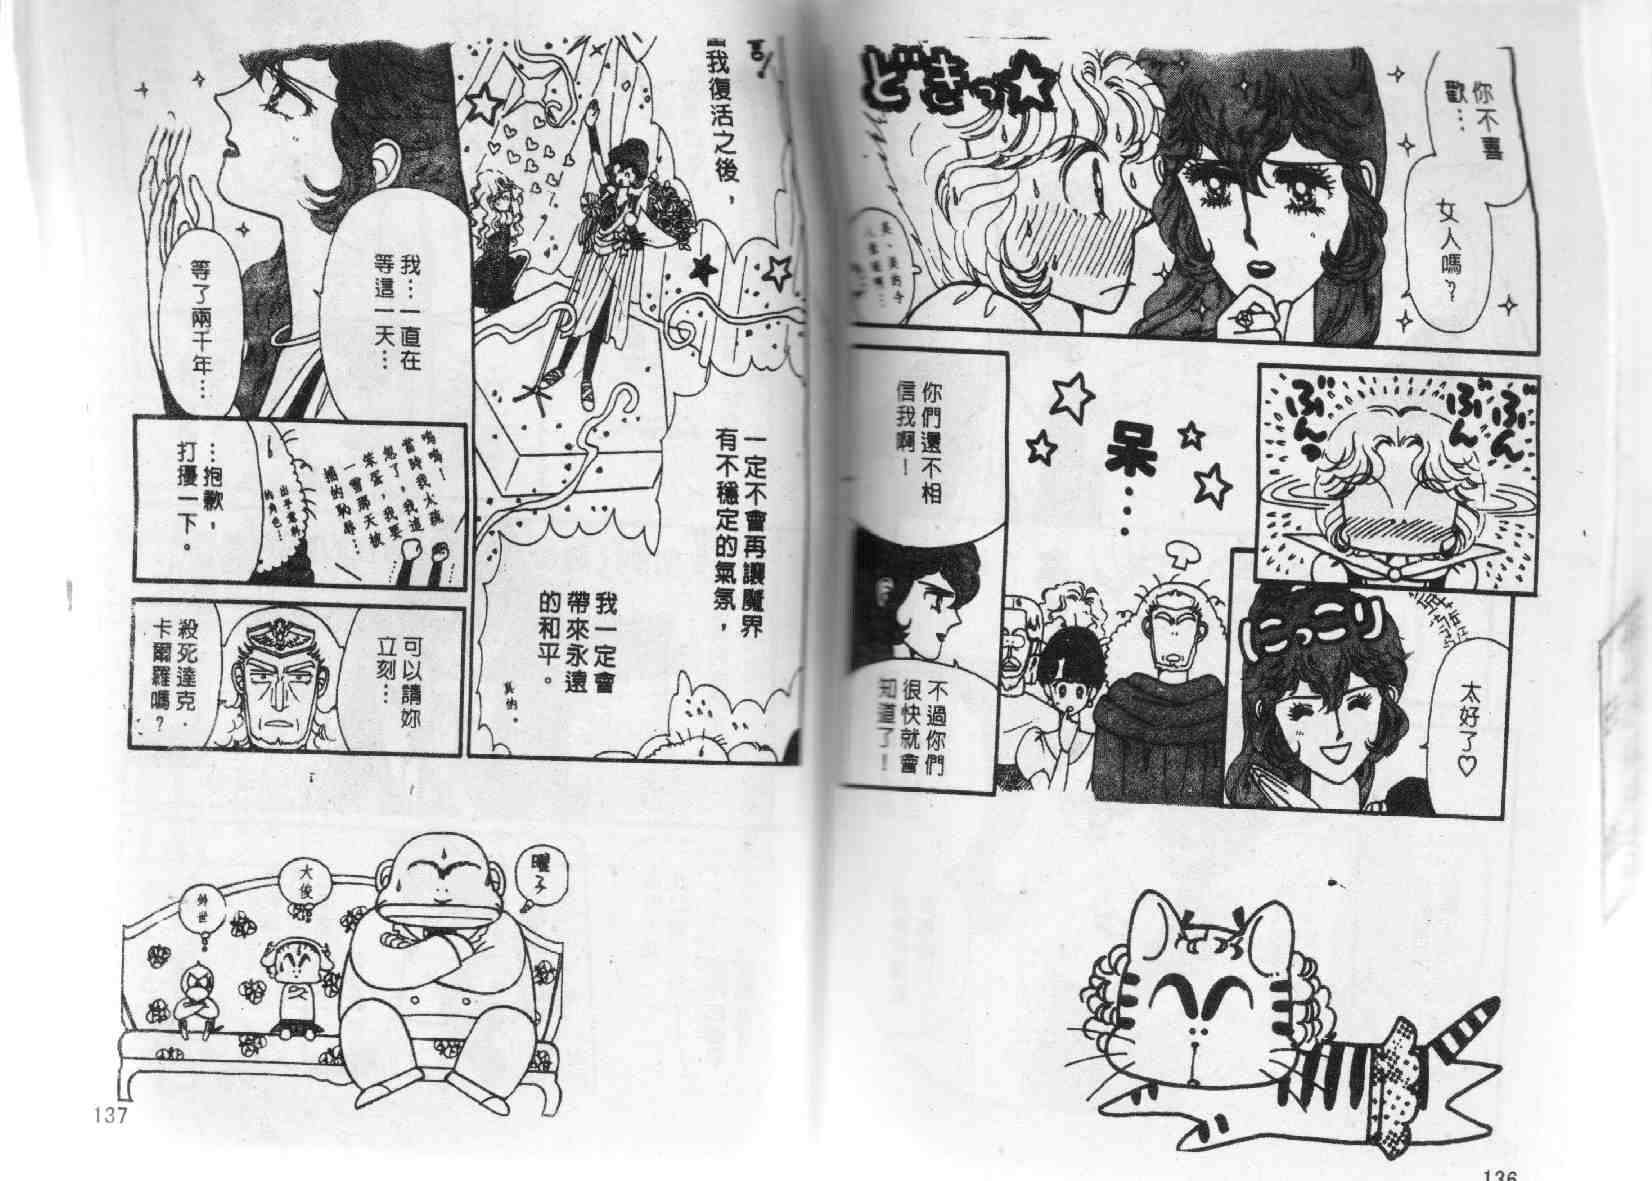 你不喜
歡…
女人嗎？
どきっ☆
ぶんぶんぶんっ
太好了♡
にっこり
呆……
你們還不相
信我啊！
不過你們
很快就會
知道了！
136
我復活之後，
一定不會再讓魔界
有不穩定的氣氛，
我一定會
帶來永遠
的和平。
真的。
我…一直在
等這一天…
等了兩千年…
嗚嗚！
當時我太疏
忽了，我這
笨蛋，我要
一雪那天被
捕的恥辱…
出乎意料
的角色…
…抱歉，
打擾一下。
可以請妳
立刻…
殺死達克・
卡爾羅嗎？
曜子
大俊
外世
137